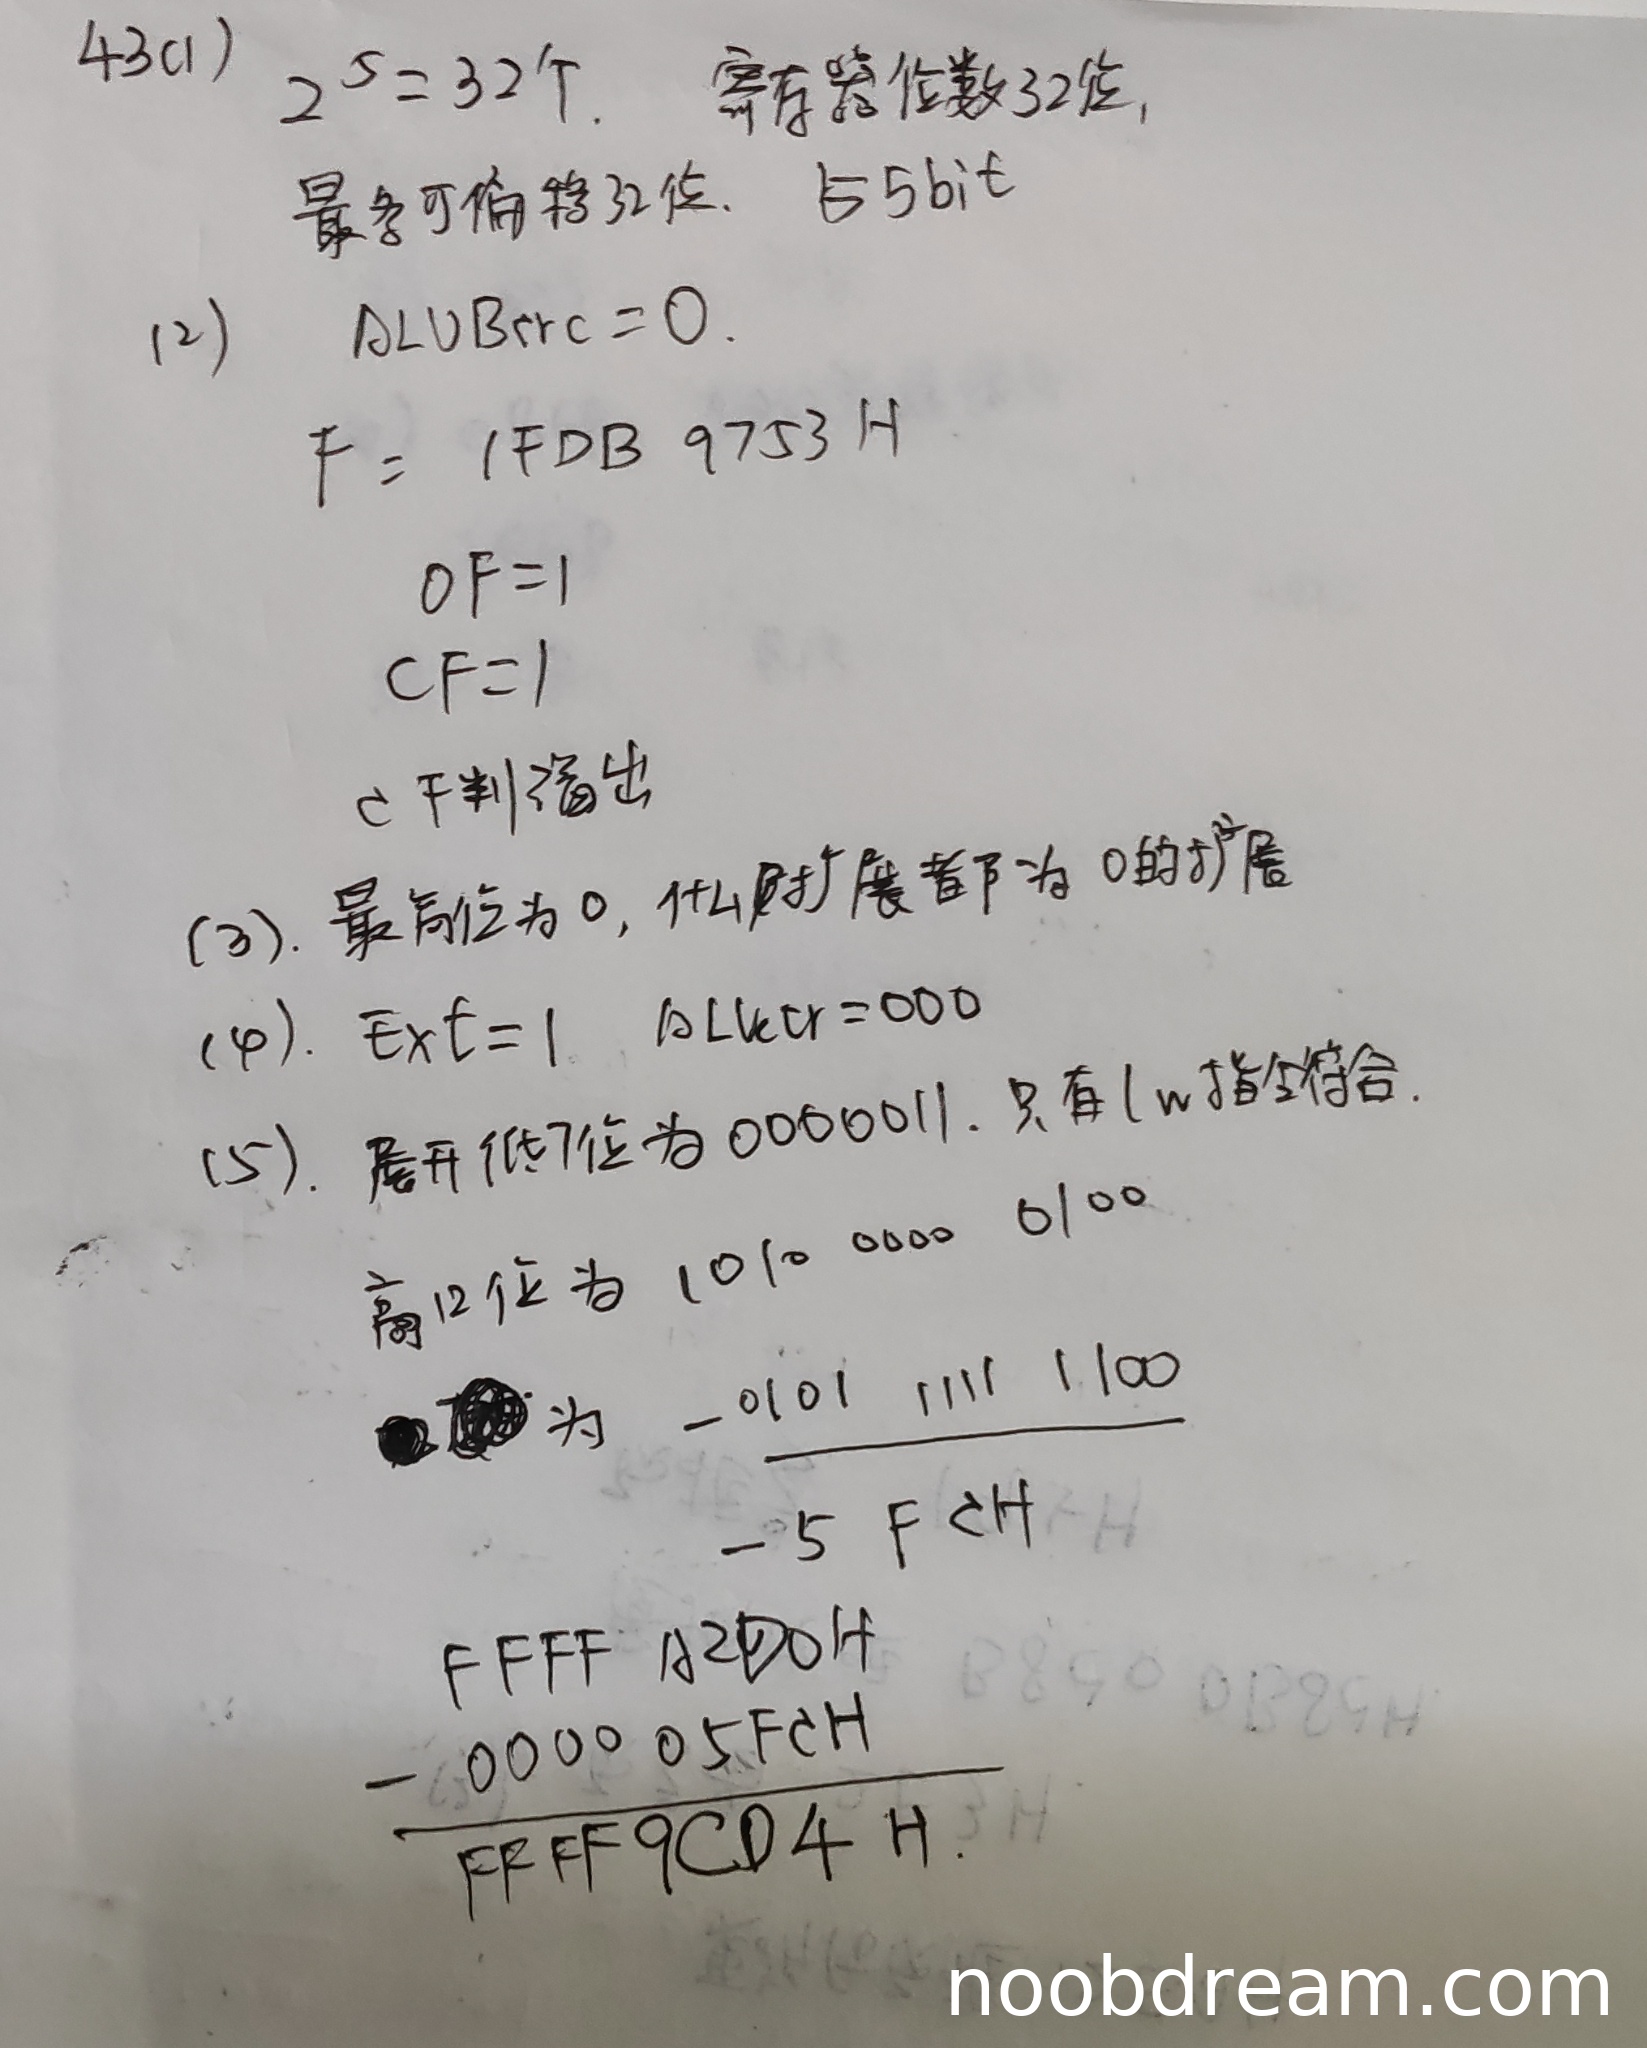 43(1) 2^5=32个. 寄存器位数32位,
最多可偏移32位. 占5bit
(2) ALUBsrc=0.
F= 1FDB 9753H
OF=1
CF=1
CF判溢出
(3). 最高位为0, 什么时扩展都为0的扩展
(4). Ext=1 ALUctr=000
(5). 展开低7位为0000011. 只有lw指令符合.
高12位为 1010 0000 0100
为 -0101 1111 1100
-5 FCH
FFFF A2D0H
- 0000 05FCH
FFFF9CD4 H.
noobdream.com